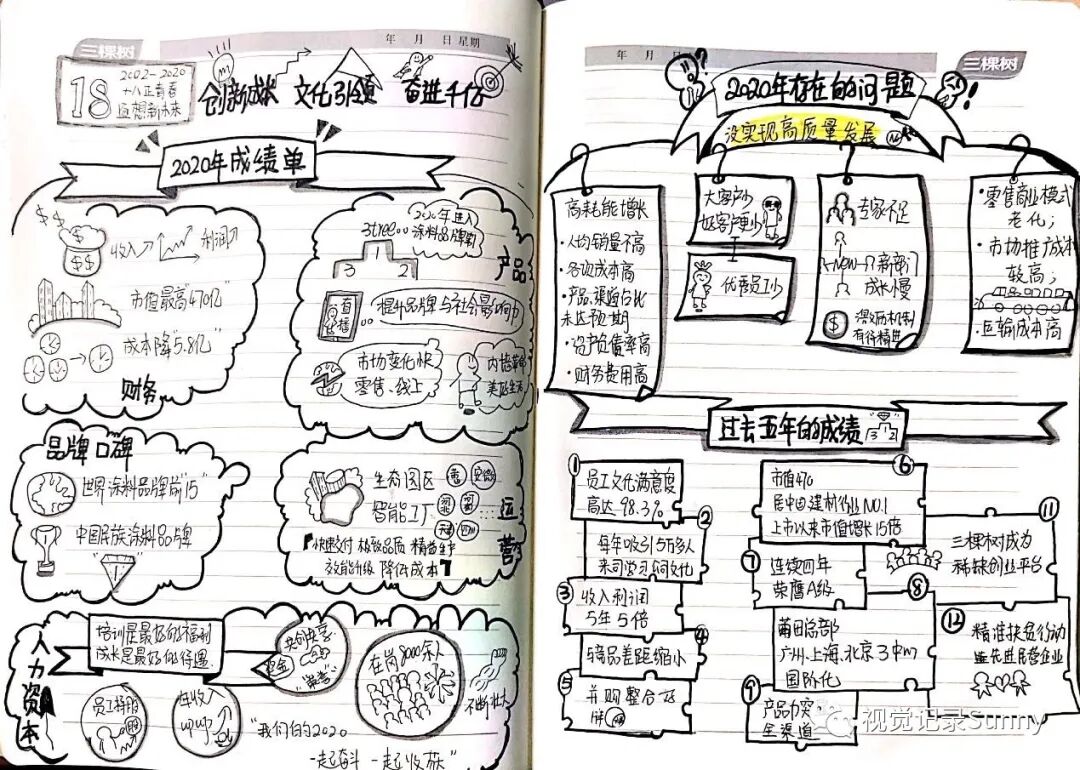 三棵树
年 月 日 星期
18
2002-2020
十八正青春
创新成长 文化引领 奋进千亿
2020年成绩单
收入
利润
市值最高"470亿"
成本降"5.8亿"
财务
2020年进入
3tree
涂料品牌
3 1 2
产品
直播
提升品牌与社会影响力
市场变化快
零售、线上
内墙革命
美好生活
品牌口碑
世界涂料品牌前"15"
中国民族涂料品牌
"1"
生态园区
智能工厂
运营
快速交付 极致品质 精益生产
效能升级 降低成本
人力资本
培训是最好的福利
成长是最好的待遇
共创共享
奖金
"荣誉"
员工持股
年收入
up up
在岗8000余人
不断壮大
"我们的2020
一起奋斗 一起收获"
年 月
三棵树
2020年存在的问题
没实现高质量发展
NO
高耗能增长
·人均销量不高
·各项成本高
·产品、渠道占比
未达预期
·资产负债率高
·财务费用高
大客户少
好客户更少
优秀员工少
专家不足
NOW
新部门
成长慢
$
激励机制
有待精进
·零售商业模式
老化;
·市场推广成本
较高;
·运输成本高
过去五年的成绩
3 1 2
①
员工文化满意度
高达98.3%
②
每年吸引5万多人
来司学习、问文化
③
收入利润
5年5倍
④
与竞品差距缩小
⑤
并购整合
⑥
市值470
居中国建材行业NO.1
上市以来市值增长15倍
⑦
连续四年
荣膺A级
⑧
莆田总部
广州、上海、北京3中心
国际化
⑨
产品力突
全渠道
⑪
三棵树成为
稀缺创业平台
⑫
精准扶贫行动
先进民营企业
视觉记录Sunny